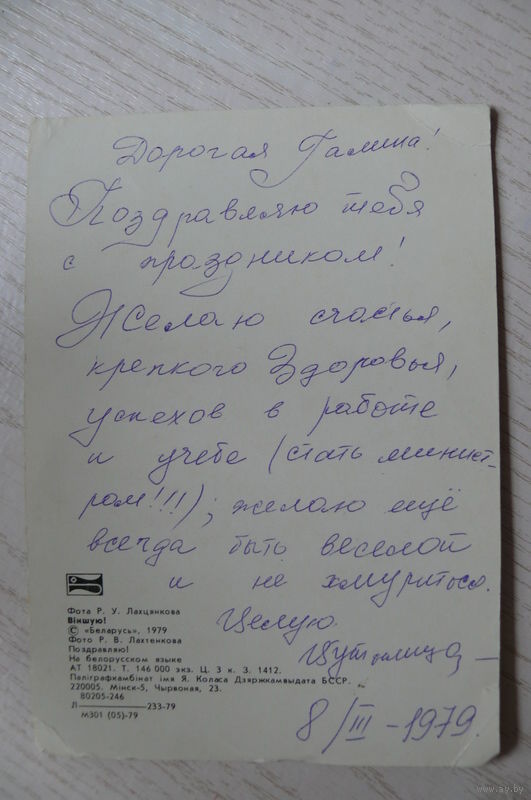 Дорогая Галина!
Поздравляю тебя
с праздником!
Желаю счастья,
крепкого Здоровья,
успехов в работе
и учебе (стать минист-
ром!!!); желаю ещё
всегда быть веселой
и не хмуриться.
Целую
8/III – 1979.
Фота Р. У. Лахцянкова
Віншую!
© «Беларусь», 1979
Фото Р. В. Лахтенкова
Поздравляю!
На белорусском языке
АТ 18021. Т. 146 000 экз. Ц. 3 к. З. 1412.
Паліграфкамбінат імя Я. Коласа Дзяржкамвыдата БССР.
220005. Мінск-5, Чырвоная, 23.
80205-246
Л————233-79
М301 (05)-79
www.ay.by